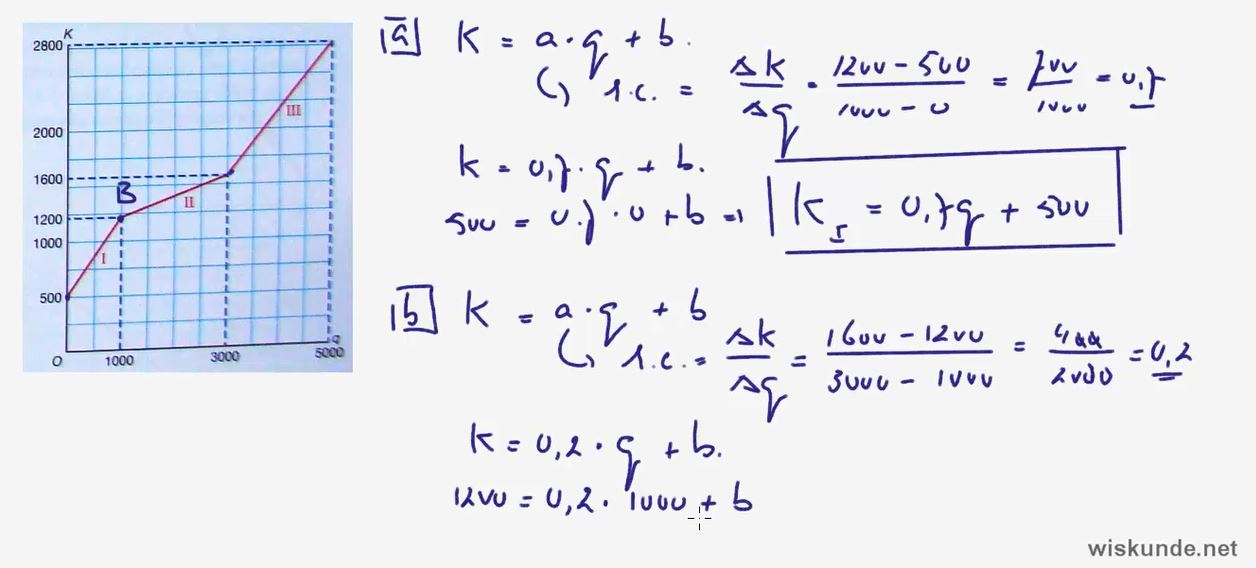 K
2800
2000
1600
1200
1000
500
O 1000 3000 5000 q
I
II
III
B
a K = a · q + b.
r.c. = ΔK/Δq = (1200 - 500)/(1000 - 0) = 700/1000 = 0,7
K = 0,7 · q + b.
500 = 0,7 · 0 + b ⇒ K_I = 0,7q + 500
b K = a · q + b
r.c. = ΔK/Δq = (1600 - 1200)/(3000 - 1000) = 400/2000 = 0,2
K = 0,2 · q + b.
1200 = 0,2 · 1000 + b
wiskunde.net